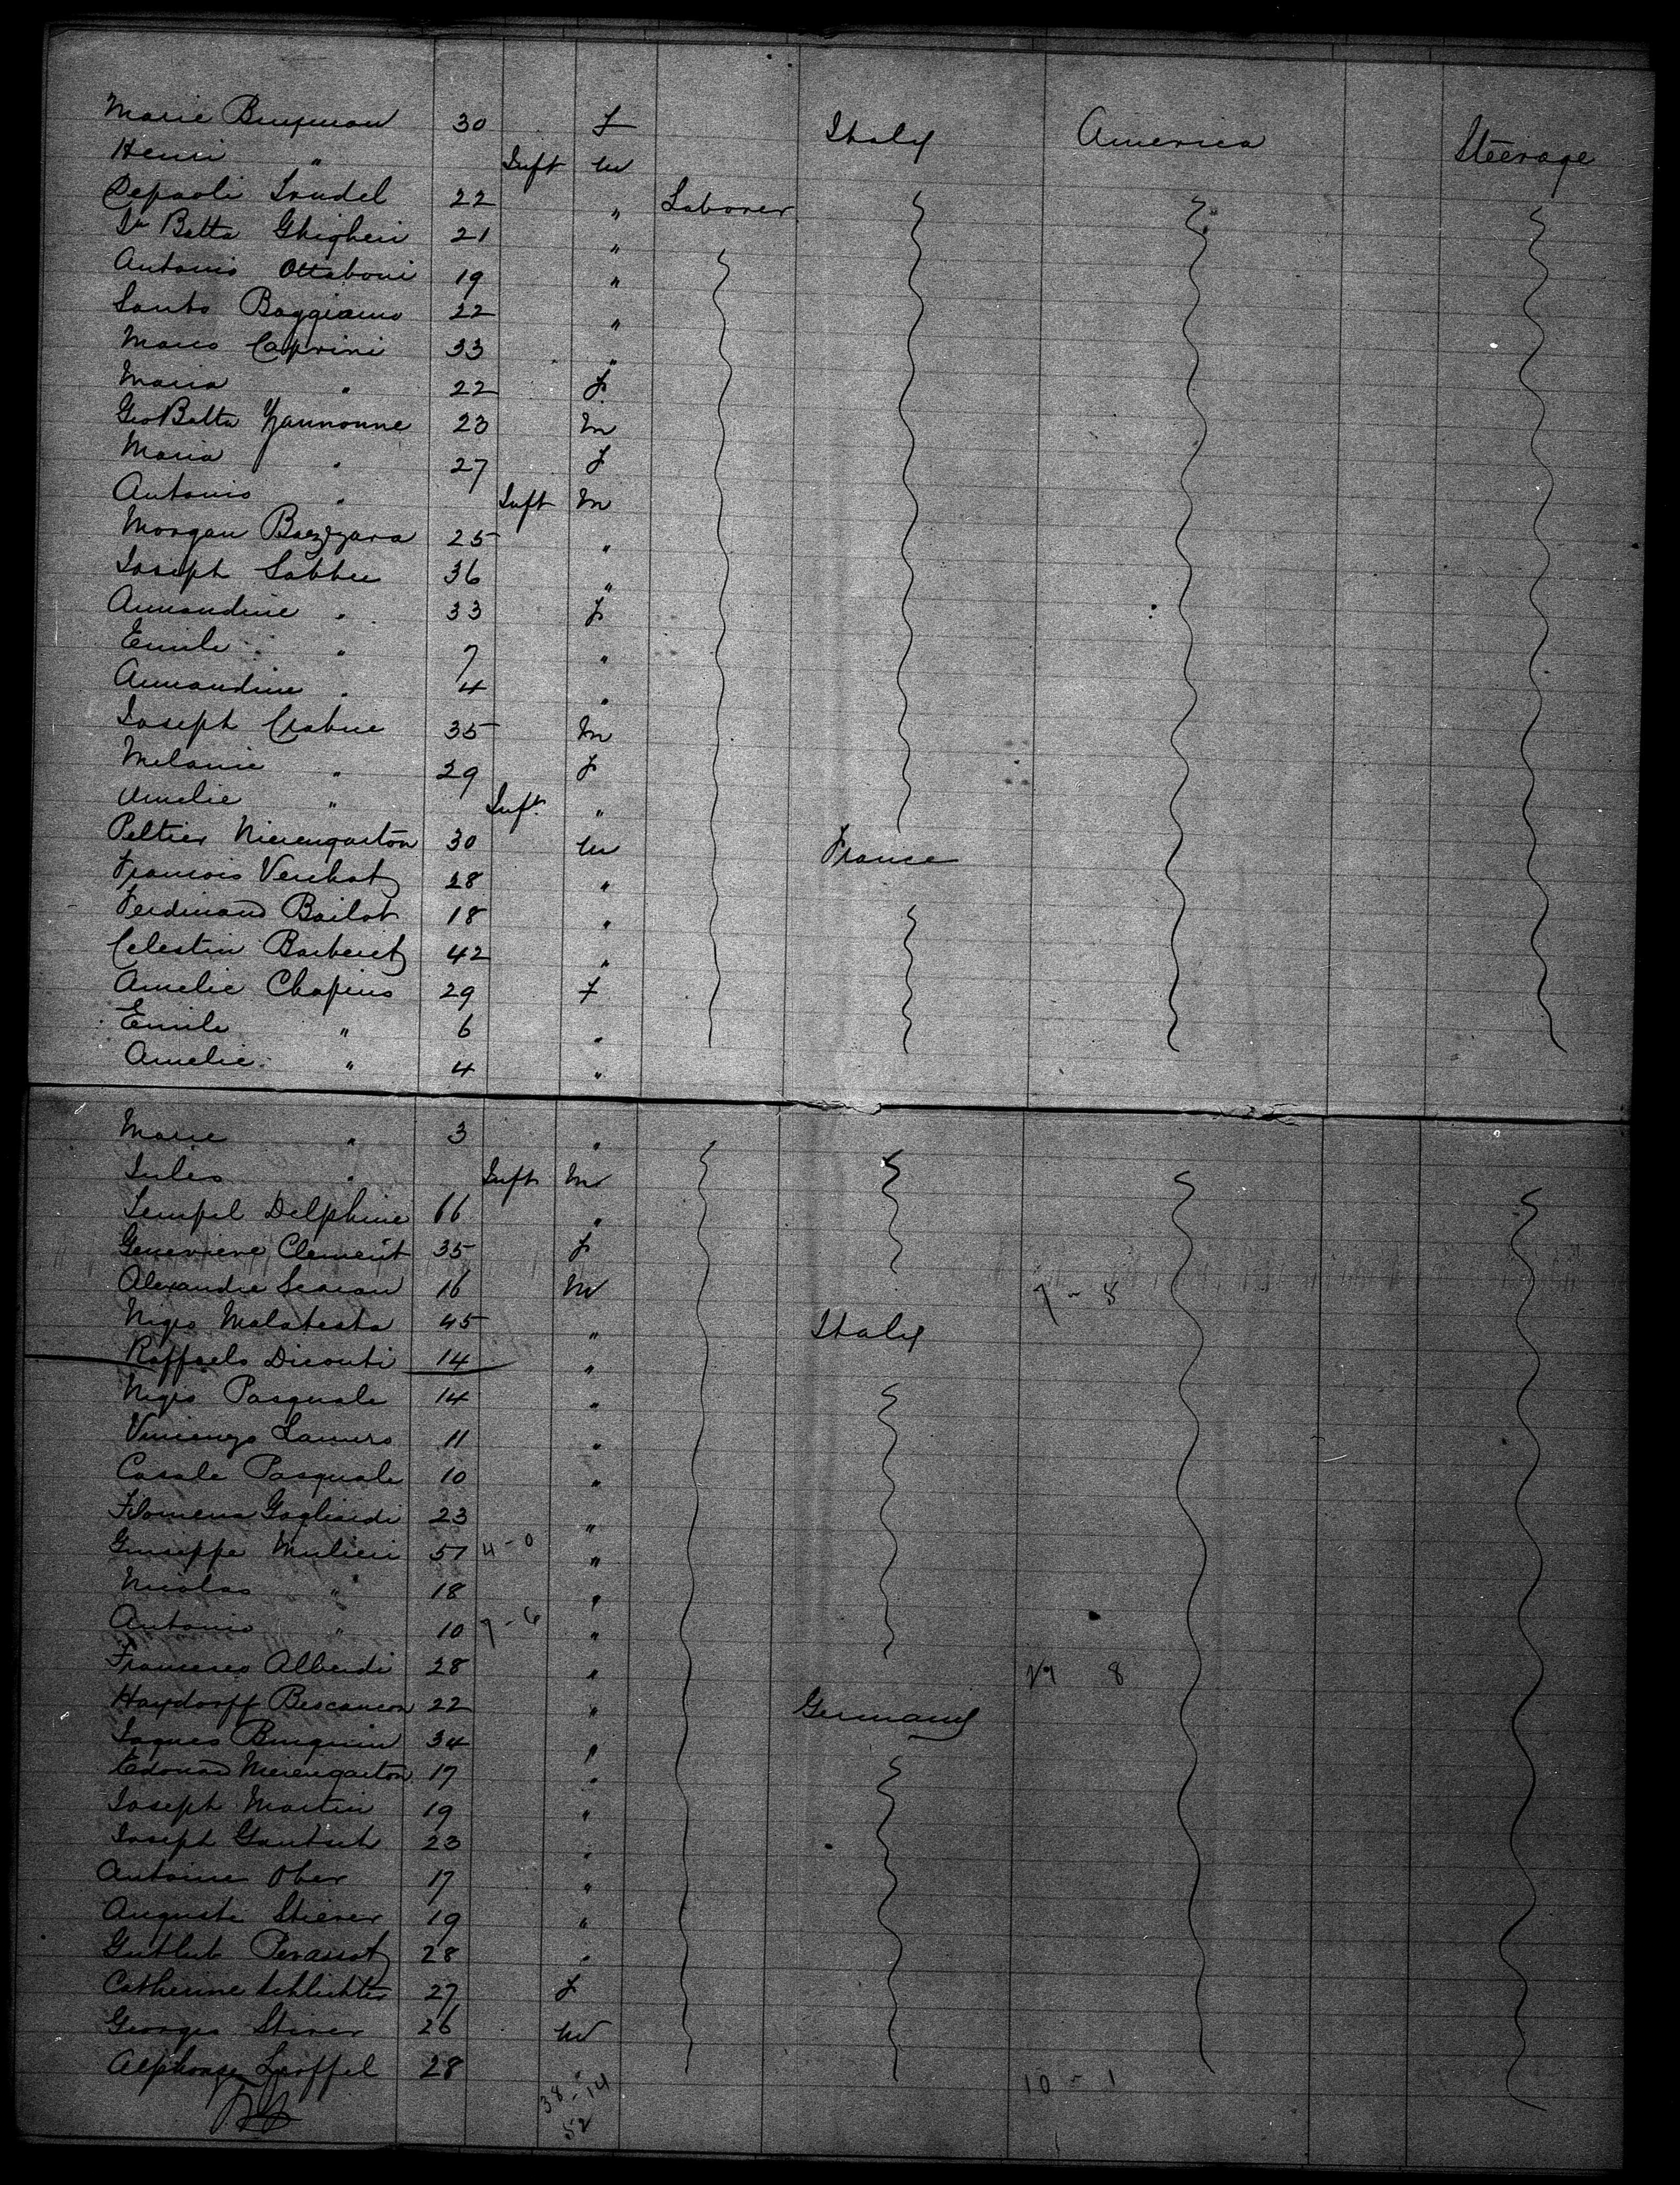 Marie Bingman 30 f Italy America Steerage
Henri " Inft m
Depaoli Laudel 22 " Laborer
Gn Batta Ghigheri 21 "
Antonio Ottaboni 19 "
Santo Baggiano 22 "
Marco Caprini 33 "
Maria " 22 f
Geo Batta Zannonne 23 m
Maria " 27 f
Antonio " Inft m
Morgan Bozzzara 25 "
Joseph Sabbue 36 "
Armandine " 33 f
Emile " 7 "
Armandine " 4 "
Joseph Crabue 35 m
Melanie " 29 f
Amelie " Inft "
Peltier Nierengarton 30 m France
Francois Verchot 28 "
Ferdinand Bailot 18 "
Celestin Barberet 42 "
Amelie Chapius 29 f
Emile " 6 "
Amelie " 4 "
Marie " 3 "
Jules " Inft m
Lempel Delphine 66 "
Genevieve Clement 35 f
Alexandre 16 m 7 - 8
Nigro Malatesta 45 " Italy
Raffaelo Diconti 14 "
Nigro Pasquale 14 "
Vincenzo Lauuro 11 "
Casale Pasquale 10 "
Filomena Gagliardi 23 "
Giuseppe Mulieri 57 4 - 0 "
Nicolas " 18 "
Antonio " 10 7 - 6 "
Francesco Alberdi 28 " 8
Haydorff Bescancon 22 " Germany
Jaques Binguin 34 "
Edouard Nierengarton 17 "
Joseph Martin 19 "
Joseph Gautsch 23 "
Antoine Ober 17 "
Auguste Stierer 19 "
Perassot 28 "
Catherine Schlichter 27 f
Georges Stirer 26 m
Alphonse Loffel 28 "
38 - 14 10 - 1
52